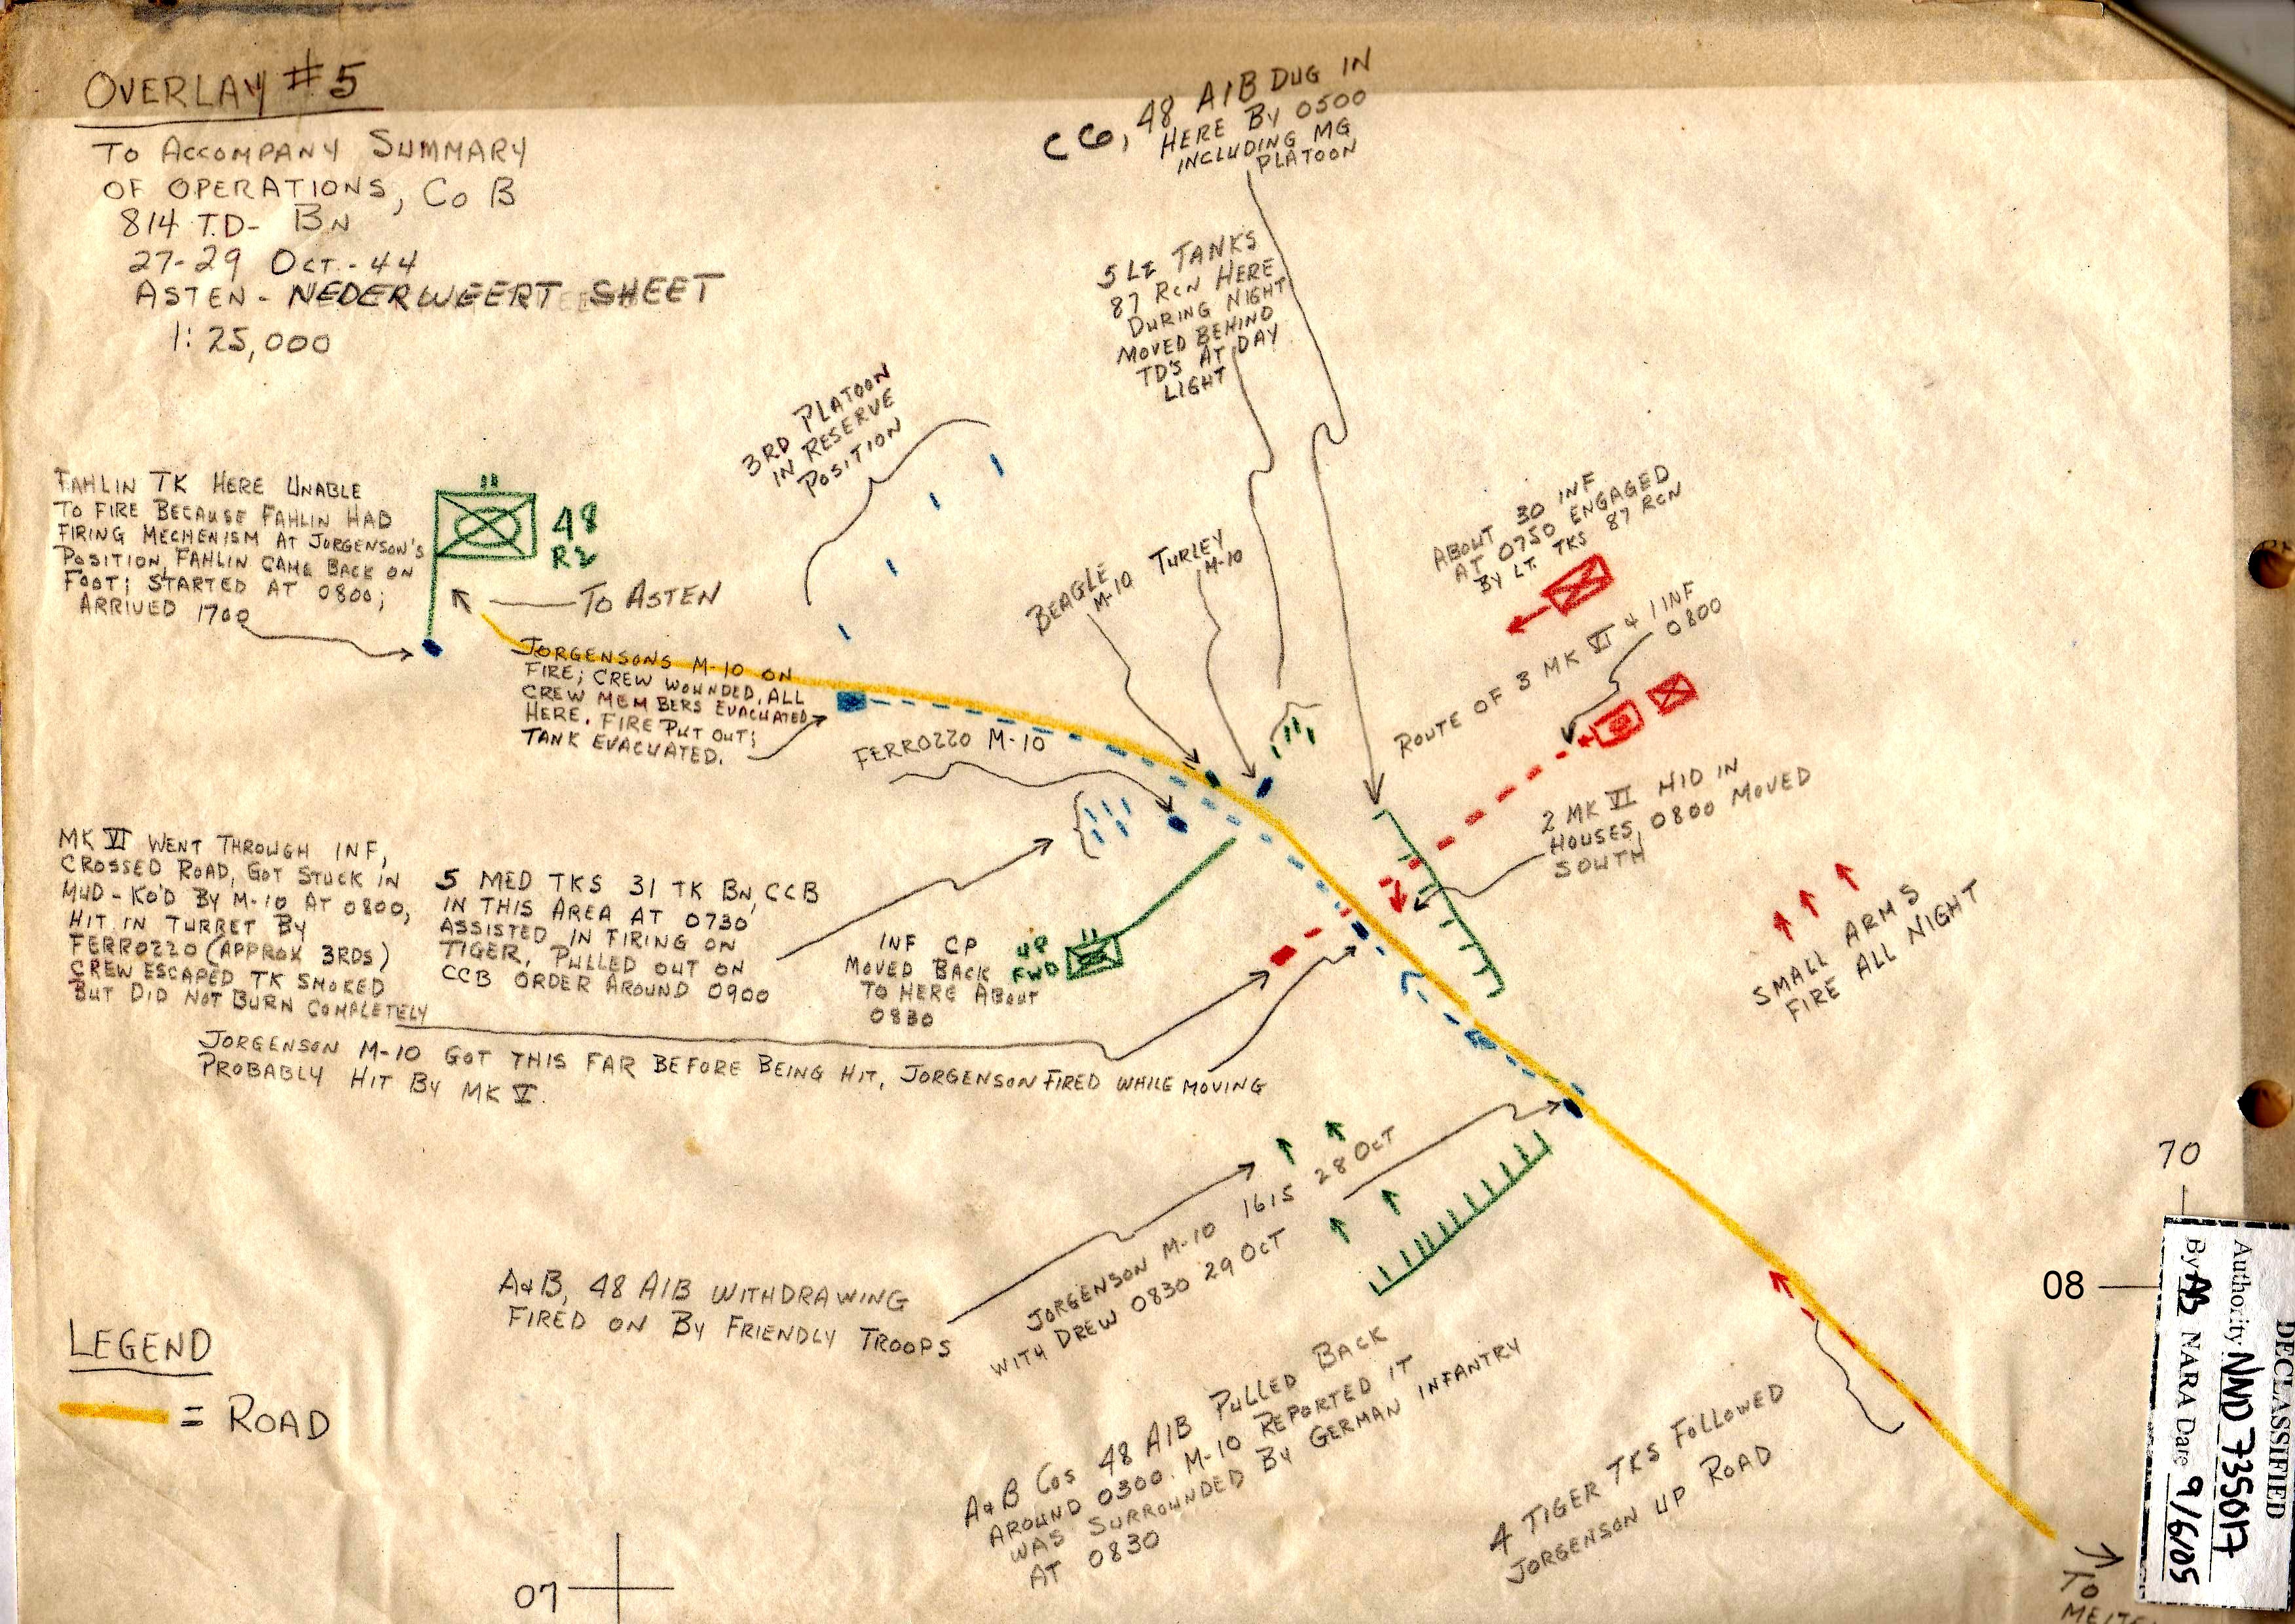 OVERLAY #5
TO ACCOMPANY SUMMARY
OF OPERATIONS, CO B
814 T.D- BN
27-29 OCT.-44
ASTEN - NEDERWEERT SHEET
1:25,000
CO, 48 AIB DUG IN
HERE BY 0500
INCLUDING MG
PLATOON
5 LT TANKS
87 RCN HERE
DURING NIGHT
MOVED BEHIND
TD'S AT DAY
LIGHT
3RD PLATOON
IN RESERVE
POSITION
FAHLIN TK HERE UNABLE
TO FIRE BECAUSE FAHLIN HAD
FIRING MECHENISM AT JORGENSON'S
POSITION, FAHLIN CAME BACK ON
FOOT; STARTED AT 0800;
ARRIVED 1700
48
TO ASTEN
BEAGLE
M-10
TURLEY
M-10
ABOUT 30 INF
AT 0750 ENGAGED
BY LT. TKS 87 RCN
ROUTE OF 3 MK VI & 1 INF
0800
JORGENSONS M-10 ON
FIRE; CREW WOUNDED, ALL
CREW MEMBERS EVACUATED
HERE. FIRE PUT OUT;
TANK EVACUATED.
FERROZZO M-10
2 MK VI HID IN
HOUSES, 0800 MOVED
SOUTH
MK VI WENT THROUGH INF,
CROSSED ROAD, GOT STUCK IN
MUD - KO'D BY M-10 AT 0800,
HIT IN TURRET BY
FERROZZO (APPROX 3RDS)
CREW ESCAPED TK SMOKED
BUT DID NOT BURN COMPLETELY
5 MED TKS 31 TK BN, CCB
IN THIS AREA AT 0730
ASSISTED IN FIRING ON
TIGER, PULLED OUT ON
CCB ORDER AROUND 0900
INF CP
MOVED BACK
TO HERE ABOUT
0830
FWD
SMALL ARMS
FIRE ALL NIGHT
JORGENSON M-10 GOT THIS FAR BEFORE BEING HIT, JORGENSON FIRED WHILE MOVING
PROBABLY HIT BY MK V.
JORGENSON M-10 1615 28 OCT
WITH DREW 0830 29 OCT
A&B, 48 AIB WITHDRAWING
FIRED ON BY FRIENDLY TROOPS
A&B COS 48 AIB PULLED BACK
AROUND 0300. M-10 REPORTED IT
WAS SURROUNDED BY GERMAN INFANTRY
AT 0830
4 TIGER TKS FOLLOWED
JORGENSON UP ROAD
LEGEND
= ROAD
07
70
08
TO
DECLASSIFIED
Authority NND 735017
By AB NARA Date 9/6/05